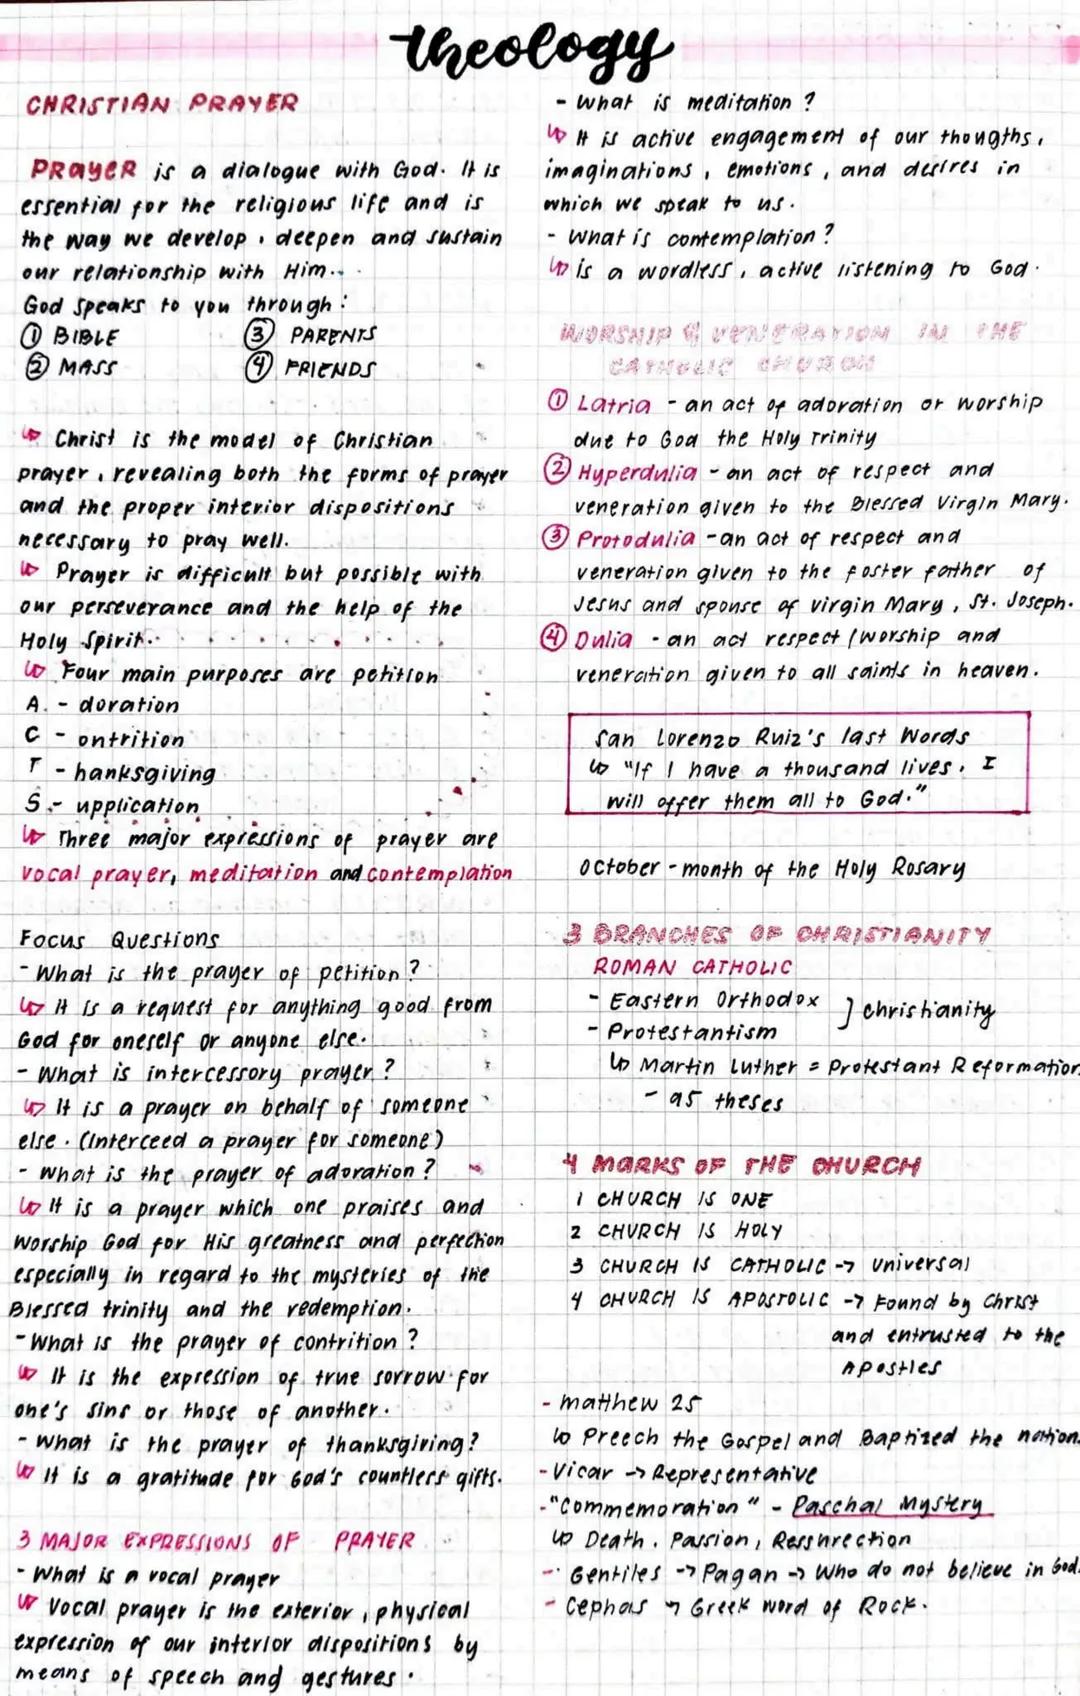 theology
CHRISTIAN PRAYER
PRAYER is a dialogue with God. It is
essential for the religious life and is
the way we develop, deepen and sustain
our relationship with Him..
God speaks to you through:
① BIBLE ③ PARENTS
② MASS ④ FRIENDS
↳ Christ is the model of Christian
prayer, revealing both the forms of prayer
and the proper interior dispositions
necessary to pray well.
↳ Prayer is difficult but possible with
our perseverance and the help of the
Holy Spirit.
↳ Four main purposes are petition
A. - doration
C - ontrition
T - hanksgiving
S - upplication
↳ Three major expressions of prayer are
vocal prayer, meditation and contemplation
Focus Questions
- What is the prayer of petition?
↳ It is a request for anything good from
God for oneself or anyone else.
- What is intercessory prayer?
↳ It is a prayer on behalf of someone
else. (Interceed a prayer for someone)
- What is the prayer of adoration?
↳ It is a prayer which one praises and
worship God for His greatness and perfection
especially in regard to the mysteries of the
Blessed trinity and the redemption.
- What is the prayer of contrition?
↳ It is the expression of true sorrow for
one's sins or those of another.
- What is the prayer of thanksgiving?
↳ It is a gratitude for God's countless gifts.
3 MAJOR EXPRESSIONS OF PRAYER
- What is a vocal prayer
↳ Vocal prayer is the exterior, physical
expression of our interior dispositions by
means of speech and gestures.
- What is meditation?
↳ It is active engagement of our thougths,
imaginations, emotions, and desires in
which we speak to us.
- What is contemplation?
↳ is a wordless, active listening to God.
WORSHIP & VENERATION IN THE
CATHOLIC CHURCH
① Latria - an act of adoration or worship
due to God the Holy Trinity
② Hyperdulia - an act of respect and
veneration given to the Blessed Virgin Mary.
③ Protodulia - an act of respect and
veneration given to the foster father of
Jesus and spouse of virgin Mary, St. Joseph.
④ Dulia - an act respect / worship and
veneration given to all saints in heaven.
San Lorenzo Ruiz's last Words
↳ "If I have a thousand lives, I
will offer them all to God."
October - month of the Holy Rosary
3 BRANCHES OF CHRISTIANITY
ROMAN CATHOLIC
- Eastern Orthodox ] Christianity
- Protestantism
↳ Martin Luther = Protestant Reformation
- 95 theses
4 MARKS OF THE CHURCH
1 CHURCH IS ONE
2 CHURCH IS HOLY
3 CHURCH IS CATHOLIC -> Universal
4 CHURCH IS APOSTOLIC -> Found by Christ
and entrusted to the
Apostles
- Matthew 25
↳ Preech the Gospel and Baptized the nation
- Vicar -> Representative
- "Commemoration" - Paschal Mystery
↳ Death, Passion, Ressurection
- Gentiles -> Pagan -> Who do not believe in God.
- Cephas ↳ Greek word of Rock.